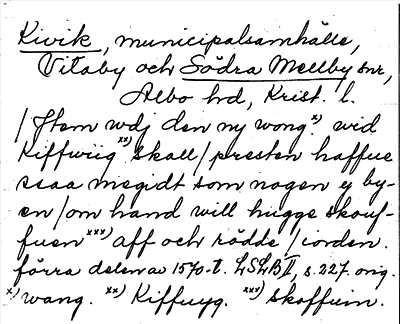 Kivik, municipalsamhälle,
Vitaby och Södra Mellby snr,
Albo hd, Krist. l.
/Jtem wdj den ny wong x) wid
Kiffwiig xx) skall/presten haffue
saa megidt som nogen y by-
en/om hand will hugge skouf-
fuen xxx) aff och rödde/iorden.
förra delen av 1570-t. LSLB II, s. 227. orig.
x) wang. xx) Kiffuyg. xxx) skoffuin.